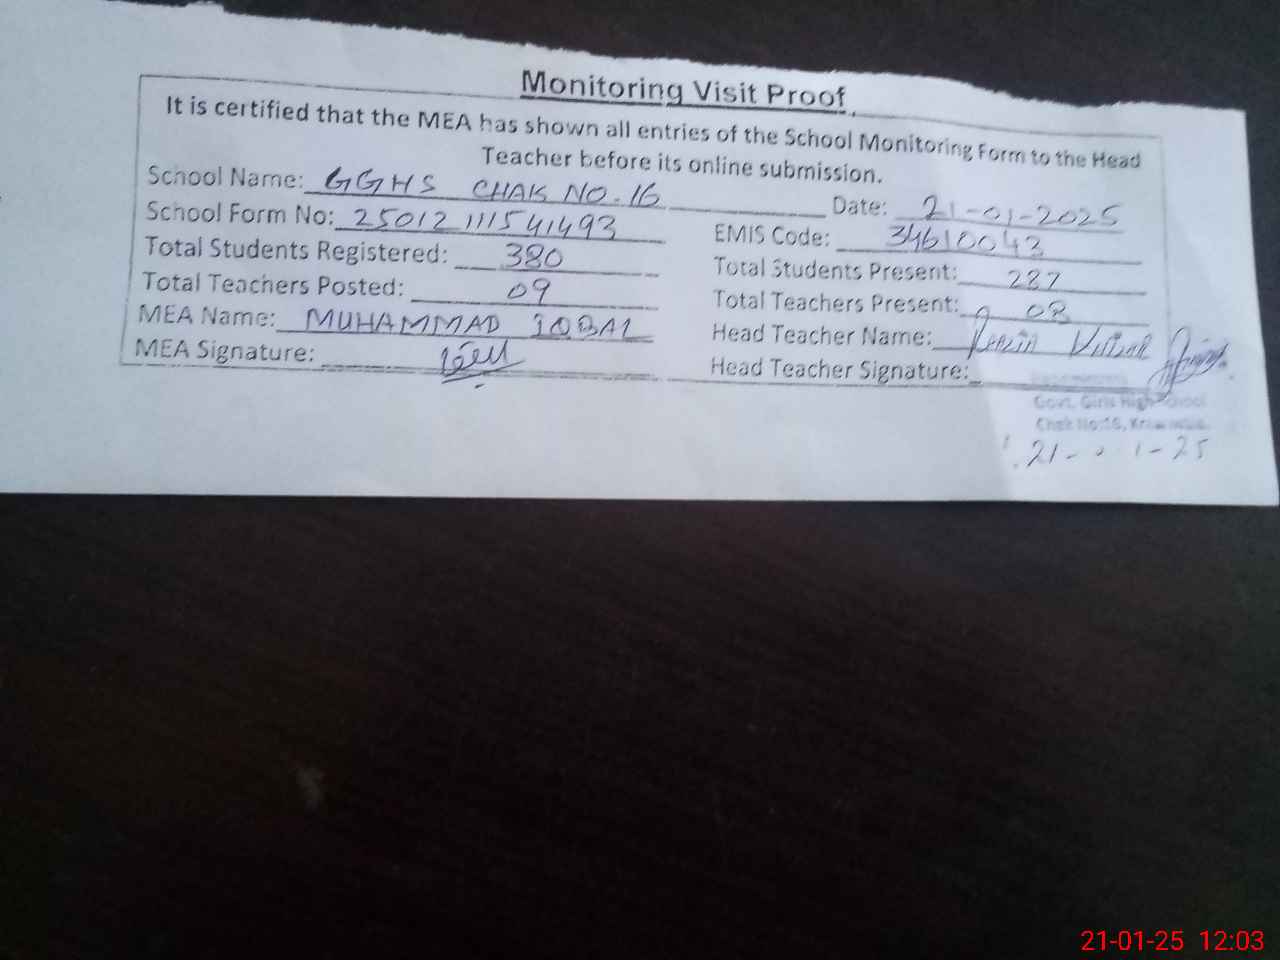 Monitoring Visit Proof
It is certified that the MEA has shown all entries of the School Monitoring Form to the Head
Teacher before its online submission.
School Name: GGHS CHAK NO. 16 Date: 21-01-2025
School Form No: 250121111541493 EMIS Code: 34610043
Total Students Registered: 380 Total Students Present: 287
Total Teachers Posted: 09 Total Teachers Present: 08
MEA Name: MUHAMMAD IQBAL Head Teacher Name:
MEA Signature: Head Teacher Signature:
Govt. Girls High School
Chak No:16,
21-01-25
21-01-25 12:03